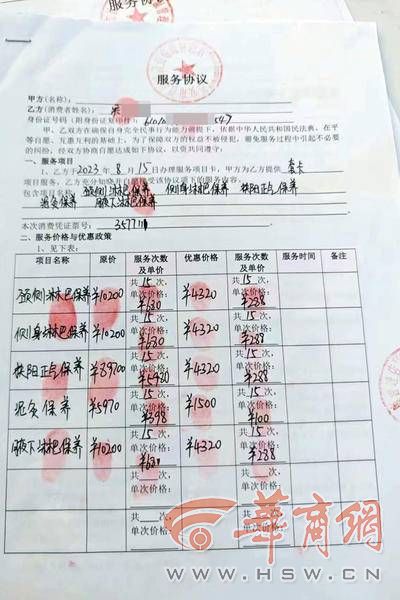 服务协议
甲方(名称):
乙方(消费者姓名):
身份证号码(附身份证复印件): 6101 547
甲、乙双方在确保自身完全民事行为能力前提下,依据中华人民共和国民法典,在平
等自愿、互惠互利的基础上,为了保障双方的权益不被侵犯,避免服务过程中引起不必要
的纠纷,经双方协商自愿达成如下协议,以资共同遵守:
一、服务项目
1、乙方于2023年8月15日办理服务项目卡,甲方为乙方提供套卡
项目服务,
颈侧淋巴保养 侧身淋巴保养 扶阳正点保养
泥灸保养 腋下淋巴保养
本次消费凭证票号: 3577110
二、服务价格与优惠政策
1、见下表:
项目名称 原价 服务次数及单价 优惠价格 服务次数及单价 服务时间 备注
颈侧淋巴保养 ¥10200 共15次,单次价格: ¥680 ¥4320 共15次,单次价格: ¥288
侧身淋巴保养 ¥10200 共15次,单次价格: ¥680 ¥4320 共15次,单次价格: ¥288
扶阳正点保养 ¥89700 共15次,单次价格: ¥5980 ¥4320 共15次,单次价格: ¥288
泥灸保养 ¥5970 共15次,单次价格: ¥398 ¥1500 共15次,单次价格: ¥100
腋下淋巴保养 ¥10200 共15次,单次价格: ¥680 ¥4320 共15次,单次价格: ¥288
共 次,单次价格: 共 次,单次价格:
共 次,单次价格: 共 次,单次价格:
華商網
WWW.HSW.CN